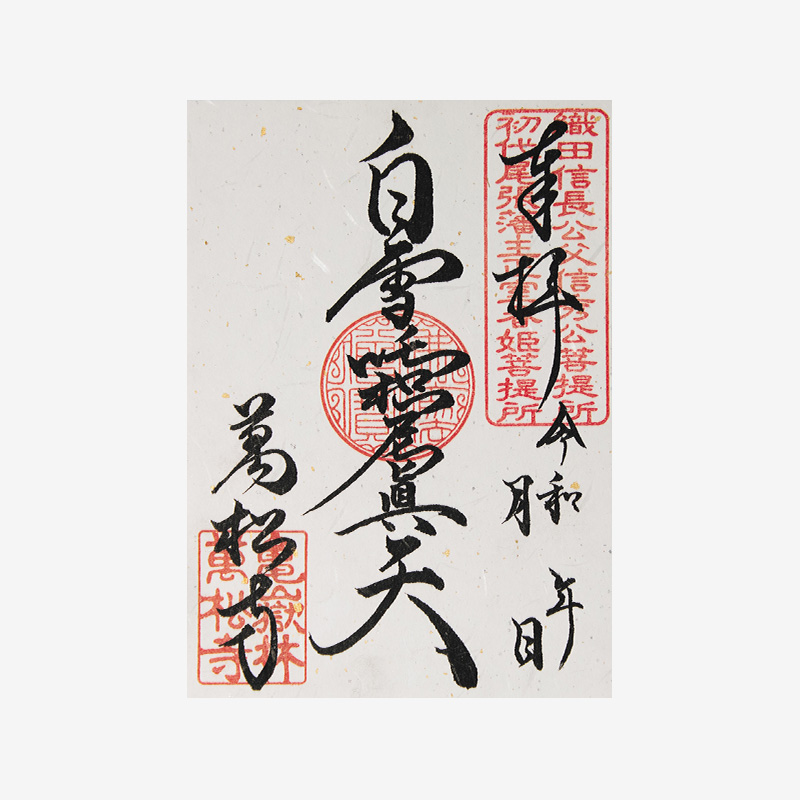 奉拝
令和 年
月 日
織田信長公父信秀公菩提所
初代尾張藩主室春姫菩提所
白雪吒枳尼眞天
萬松寺
亀嶽林
萬松寺